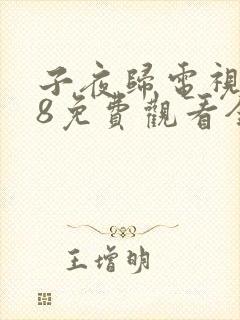 子夜歸電視
8免費觀看全
王增明